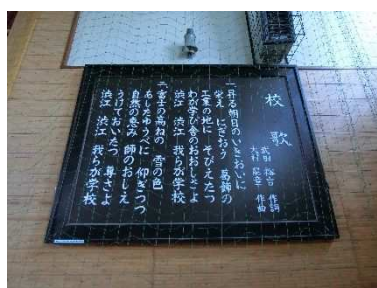 校歌
武田 裕吉 作詞
大村 能章 作曲
一、昇る朝日の いきおいに
栄え にぎおう 葛飾の
工業の地に そびえたつ
わが学び舎の おおしさよ
渋江 渋江 我らが学校
二、富士の高ねの 雪の色
あしたゆうべに 仰ぎつつ
自然の恵み 師のおしえ
うけておいたつ 尊さよ
渋江 渋江 我らが学校